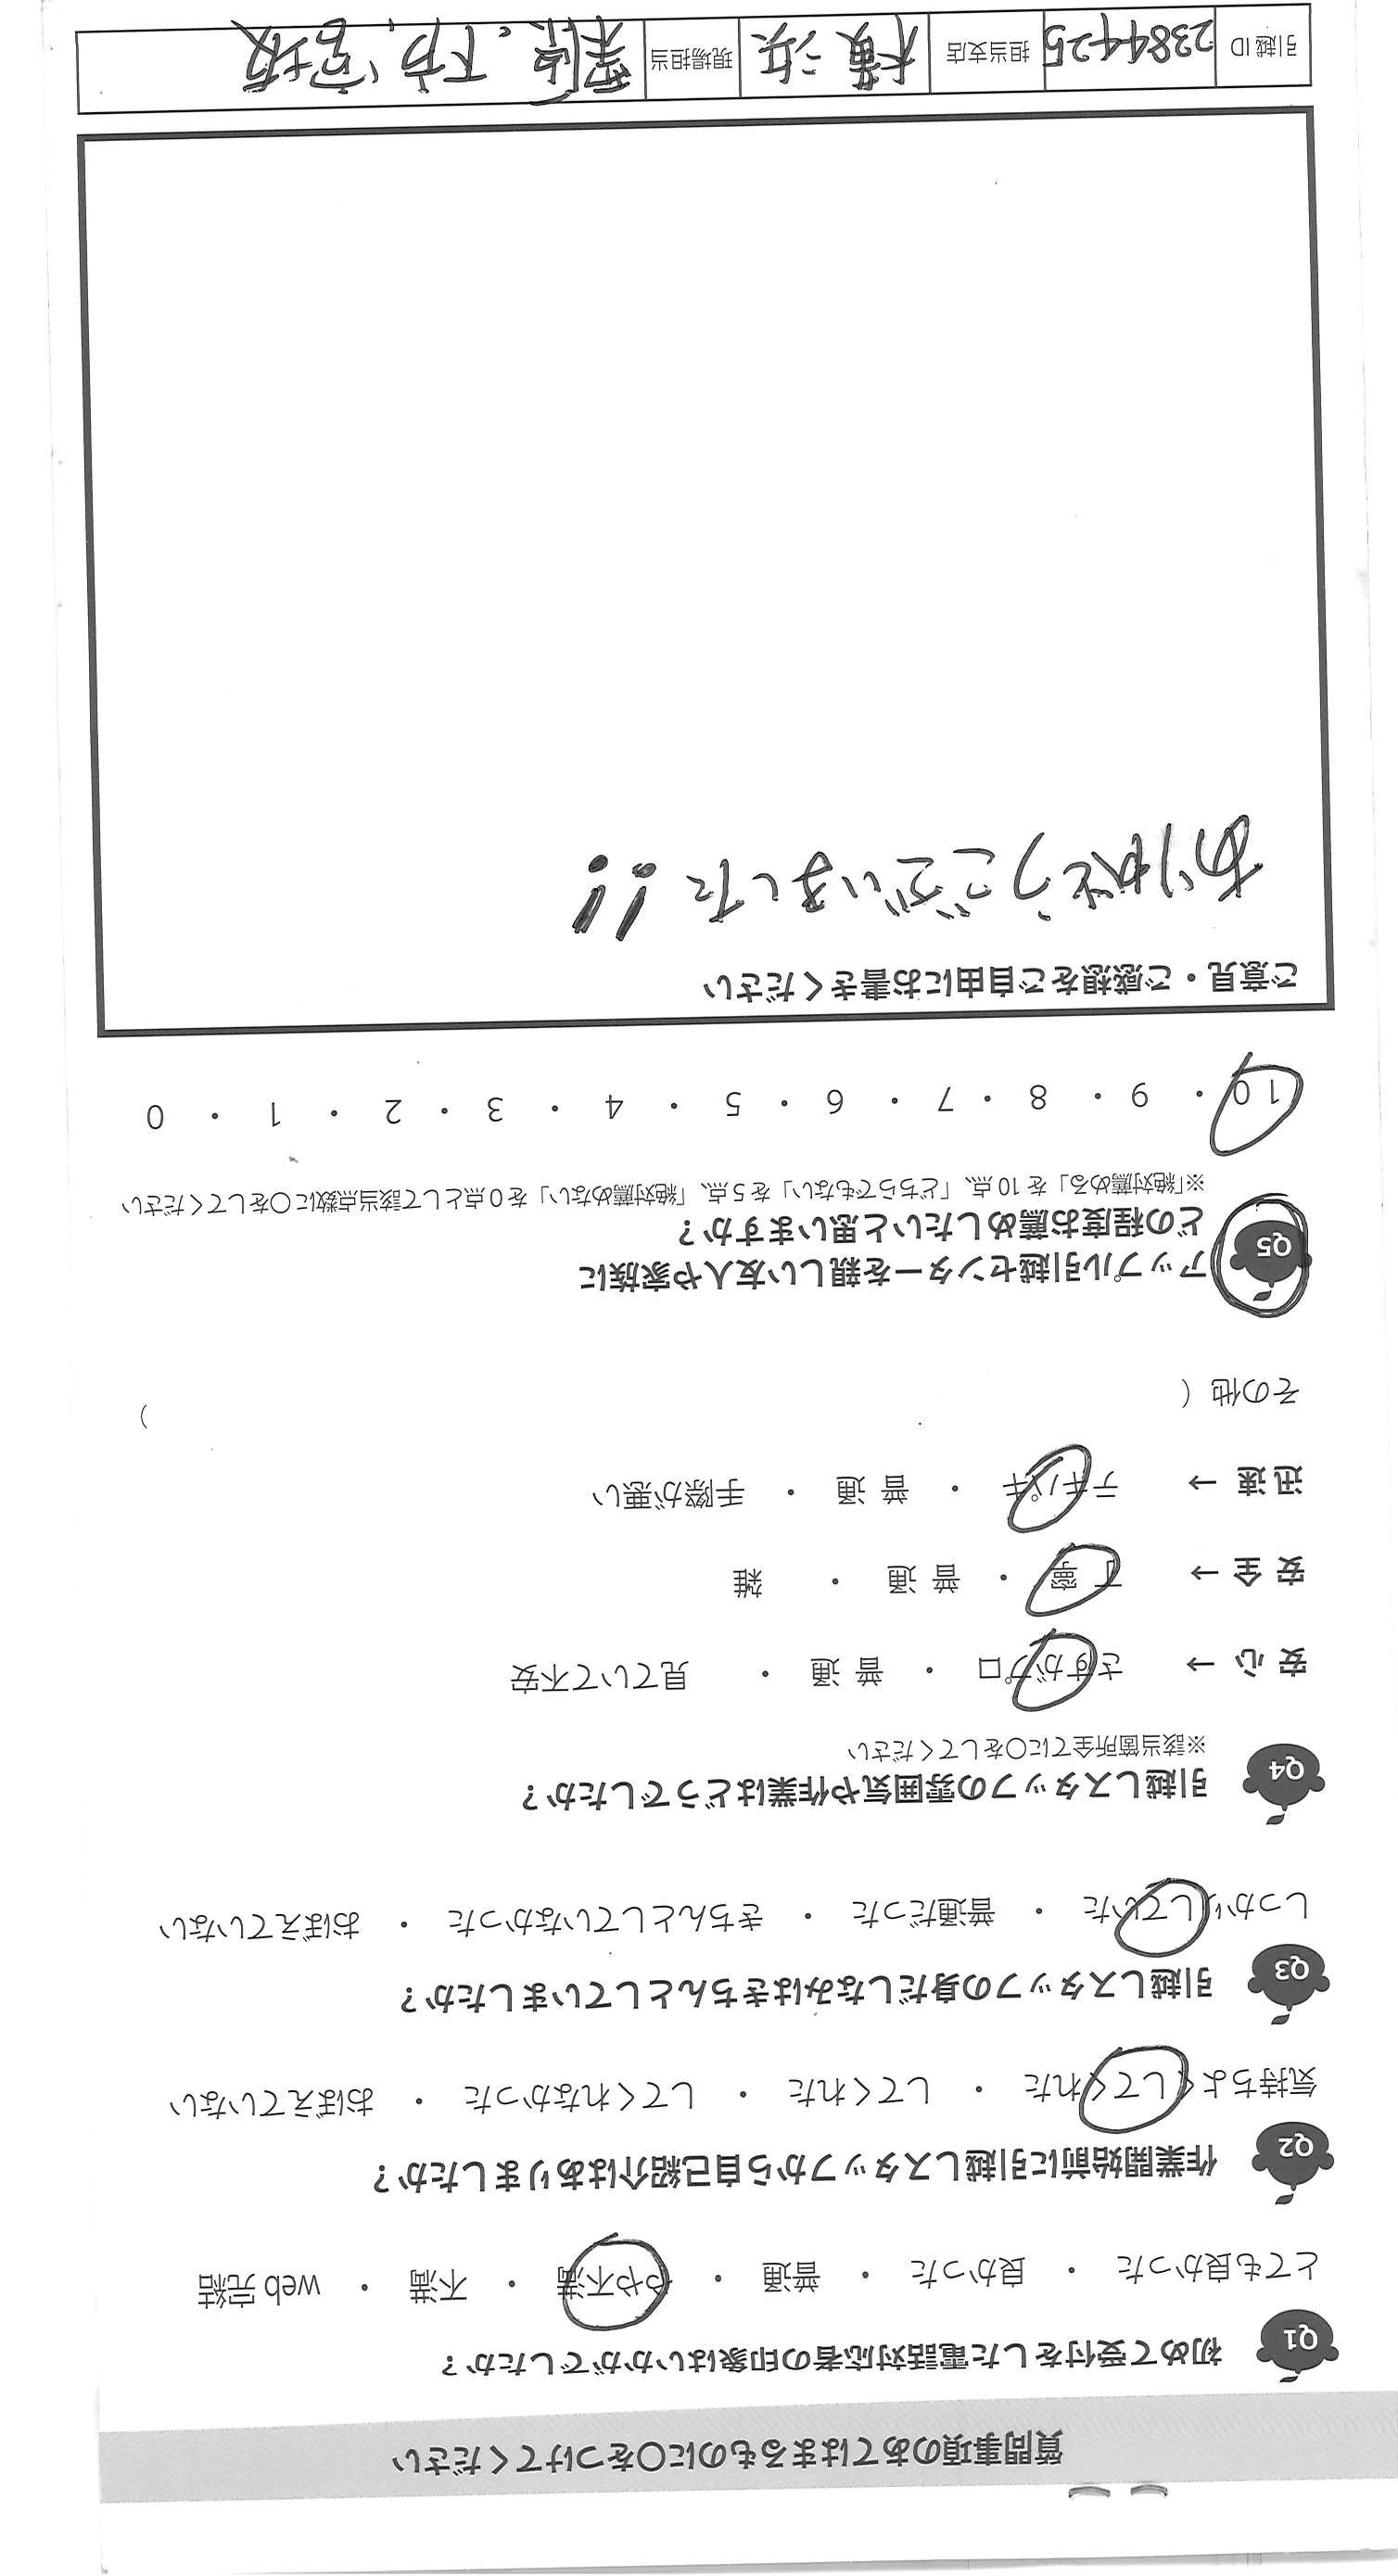 質問事項のあてはまるものに〇をつけてください
Q1 初めて受付をした電話対応者の印象はいかがでしたか？
とても良かった ・ 良かった ・ 普通 ・ やや不満 ・ 不満 ・ web完結
Q2 作業開始前に引越しスタッフから自己紹介はありましたか？
気持ちよくしてくれた ・ してくれた ・ してくれなかった ・ おぼえていない
Q3 引越しスタッフの身だしなみはきちんとしていましたか？
しっかりしていた ・ 普通だった ・ きちんとしていなかった ・ おぼえていない
Q4 引越しスタッフの雰囲気や作業はどうでしたか？
※該当箇所全てに〇をしてください
安心 → さすがプロ ・ 普通 ・ 見ていて不安
安全 → 丁寧 ・ 普通 ・ 雑
迅速 → テキパキ ・ 普通 ・ 手際が悪い
その他（ ）
Q5 アップル引越センターを親しい友人や家族に
どの程度お薦めしたいと思いますか？
※「絶対薦める」を10点、「どちらでもない」を5点、「絶対薦めない」を0点として該当点数に〇をしてください
10 ・ 9 ・ 8 ・ 7 ・ 6 ・ 5 ・ 4 ・ 3 ・ 2 ・ 1 ・ 0
ご意見・ご感想をご自由にお書きください
ありがとうございました!!
引越ID 2384425 担当支店 横浜 現場担当